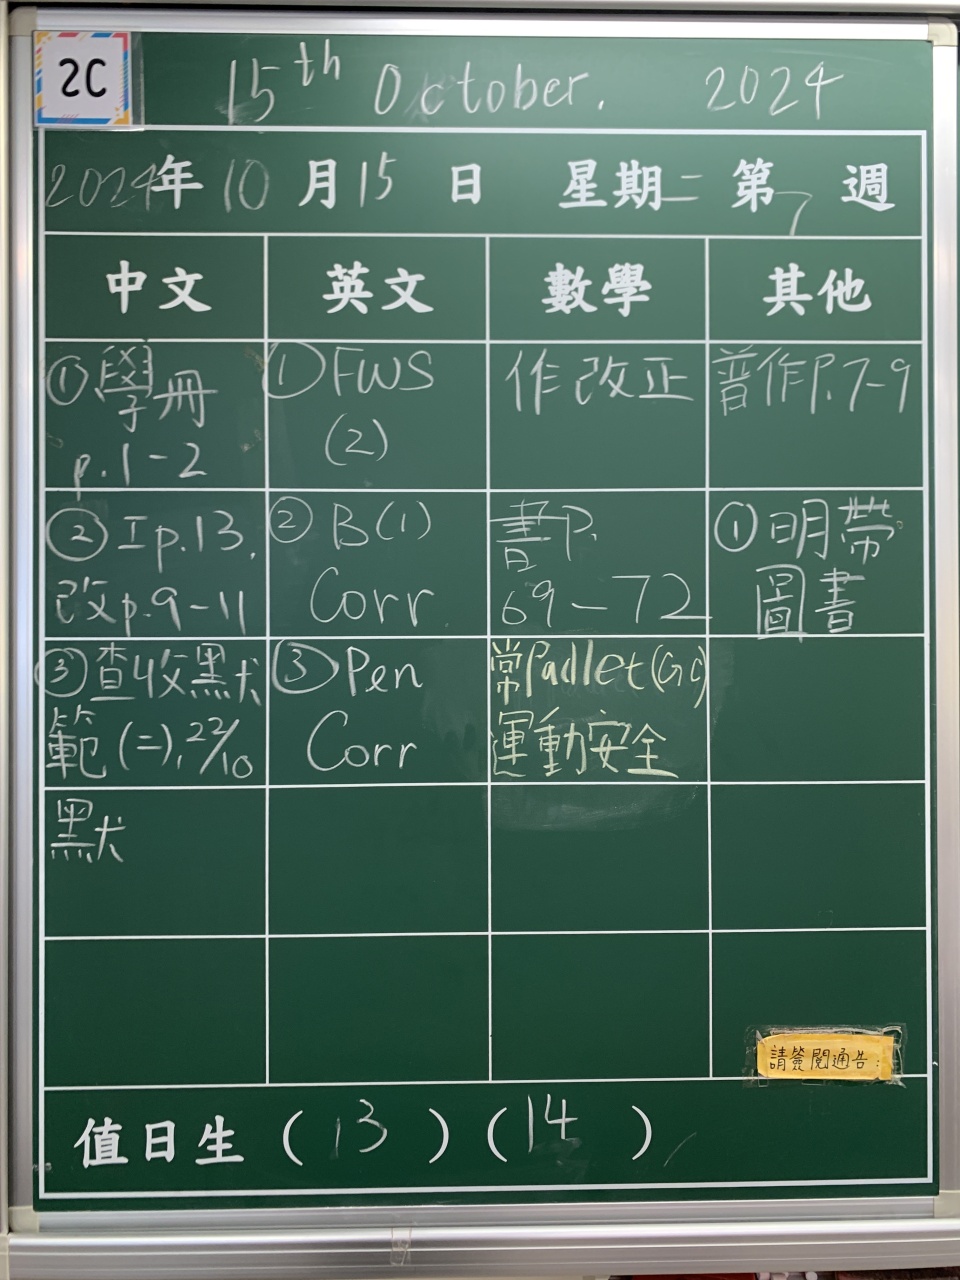 2C
15th October. 2024
2024年10月15日 星期二 第7週
中文
英文
數學
其他
①學冊
p.1-2
①FWS
(2)
作改正
普作P.7-9
②工p.13,
改p.9-11
②B(1)
Corr.
書P.
69-72
①明帶
圖書
③查收默
範(二),22/10
③Pen
Corr
常Padlet(GC)
運動安全
默
請簽閱通告
值日生(13)(14)